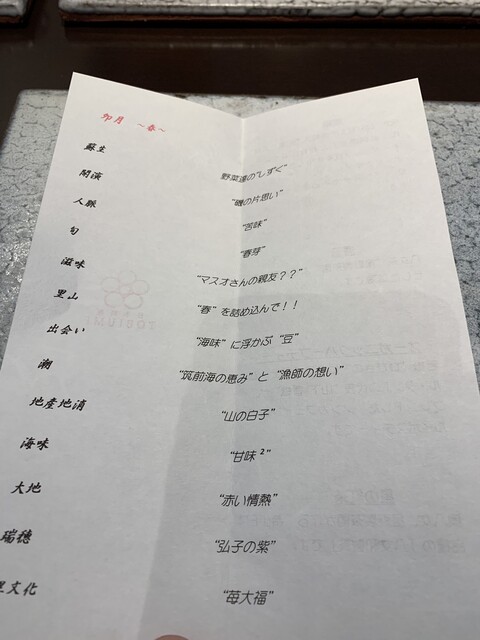 卯月 ~春~
蘇生 野菜達の"しずく"
開演 "磯の片思い"
人脈 "苦味"
旬 "春芽"
滋味 "マスオさんの親友??"
里山 "春"を詰め込んで!!
出会い "海味"に浮かぶ "豆"
潮 "筑前海の恵み"と "漁師の想い"
地産地消 "山の白子"
海味 "甘味²"
大地 "赤い情熱"
瑞穂 "弘子の紫"
文化 "苺大福"